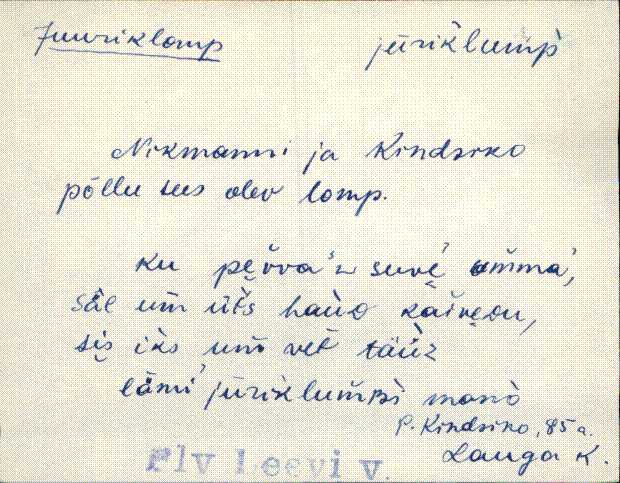 Juuriklomp jürìklum̆pì
Nikmanni ja Kindsiko
põllu sees olev lomp.
ku pe̮rva'ᴢ suvĕ um̆ma',
säe um ül̆s haùd kaĭvedu,
si̮s iks um vet täǜz
lämi' jürìklum̆pì manò
P. Kindsiko, 85 a.
Lauga K.
Plv Leevi v.